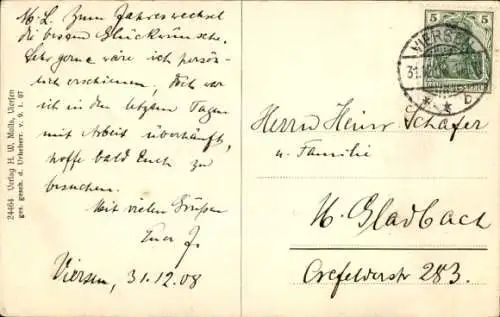 M. L. Zum Jahreswechsel
die besten Glückwünsche.
Sehr gerne wäre ich persön-
lich erschienen, doch war
ich in den letzten Tagen
mit Arbeit überhäuft,
hoffe bald Euch zu
besuchen.
Mit vielen Grüßen
Euer J.
Viersen, 31.12.08
24464 Verlag H. W. Molls, Viersen
ges. gesch. d. Urheberr. v. 9. 1. 07
5 5
VIERSEN
31.12.
* * b
Herrn Heinr. Schäfer
u. Familie
M. Gladbach
Crefelderstr 283.